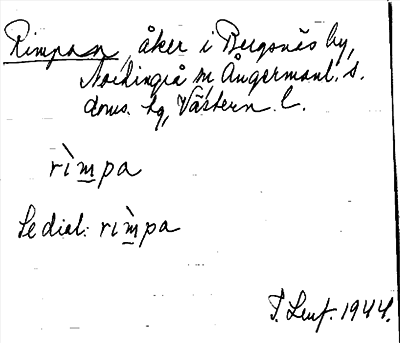 Rimpan, åker i Bergsnäs by,
Nordingrå sn Ångermanl. s.
doms. hg, Västern. l.
rìmpa
Se dial. rìmpa
F. Lenf. 1944.